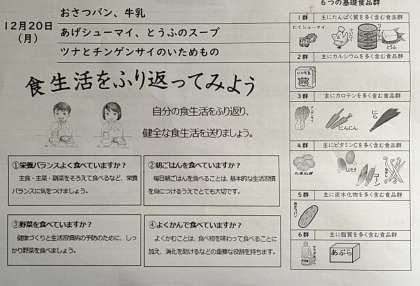 おさつパン、牛乳
12月20日
(月)
あげシューマイ、とうふのスープ
ツナとチンゲンサイのいためもの
食生活をふり返ってみよう
自分の食生活をふり返り、
健全な食生活を送りましょう。
①栄養バランスよく食べていますか？
主食・主菜・副菜をそろえて食べるなど、栄養
バランスに気をつけましょう。
②朝ごはんを食べていますか？
毎日朝ごはんを食べることは、基本的な生活習慣
を身につけるうえでとても大切です。
③野菜を食べていますか？
健康づくりと生活習慣病の予防のために、しっ
かり野菜を食べましょう。
④よくかんで食べていますか？
よくかむことは、食べ物を味わって食べることに
加え、消化を助けるなどの重要な役割を持ちます。
6つの基礎食品群
1群 主にたんぱく質を多く含む食品群
2群 主にカルシウムを多く含む食品群
3群 主にカロテンを多く含む食品群
にんじん
にら
4群 主にビタミンCを多く含む食品群
5群 主に炭水化物を多く含む食品群
6群 主に脂質を多く含む食品群
あぶら